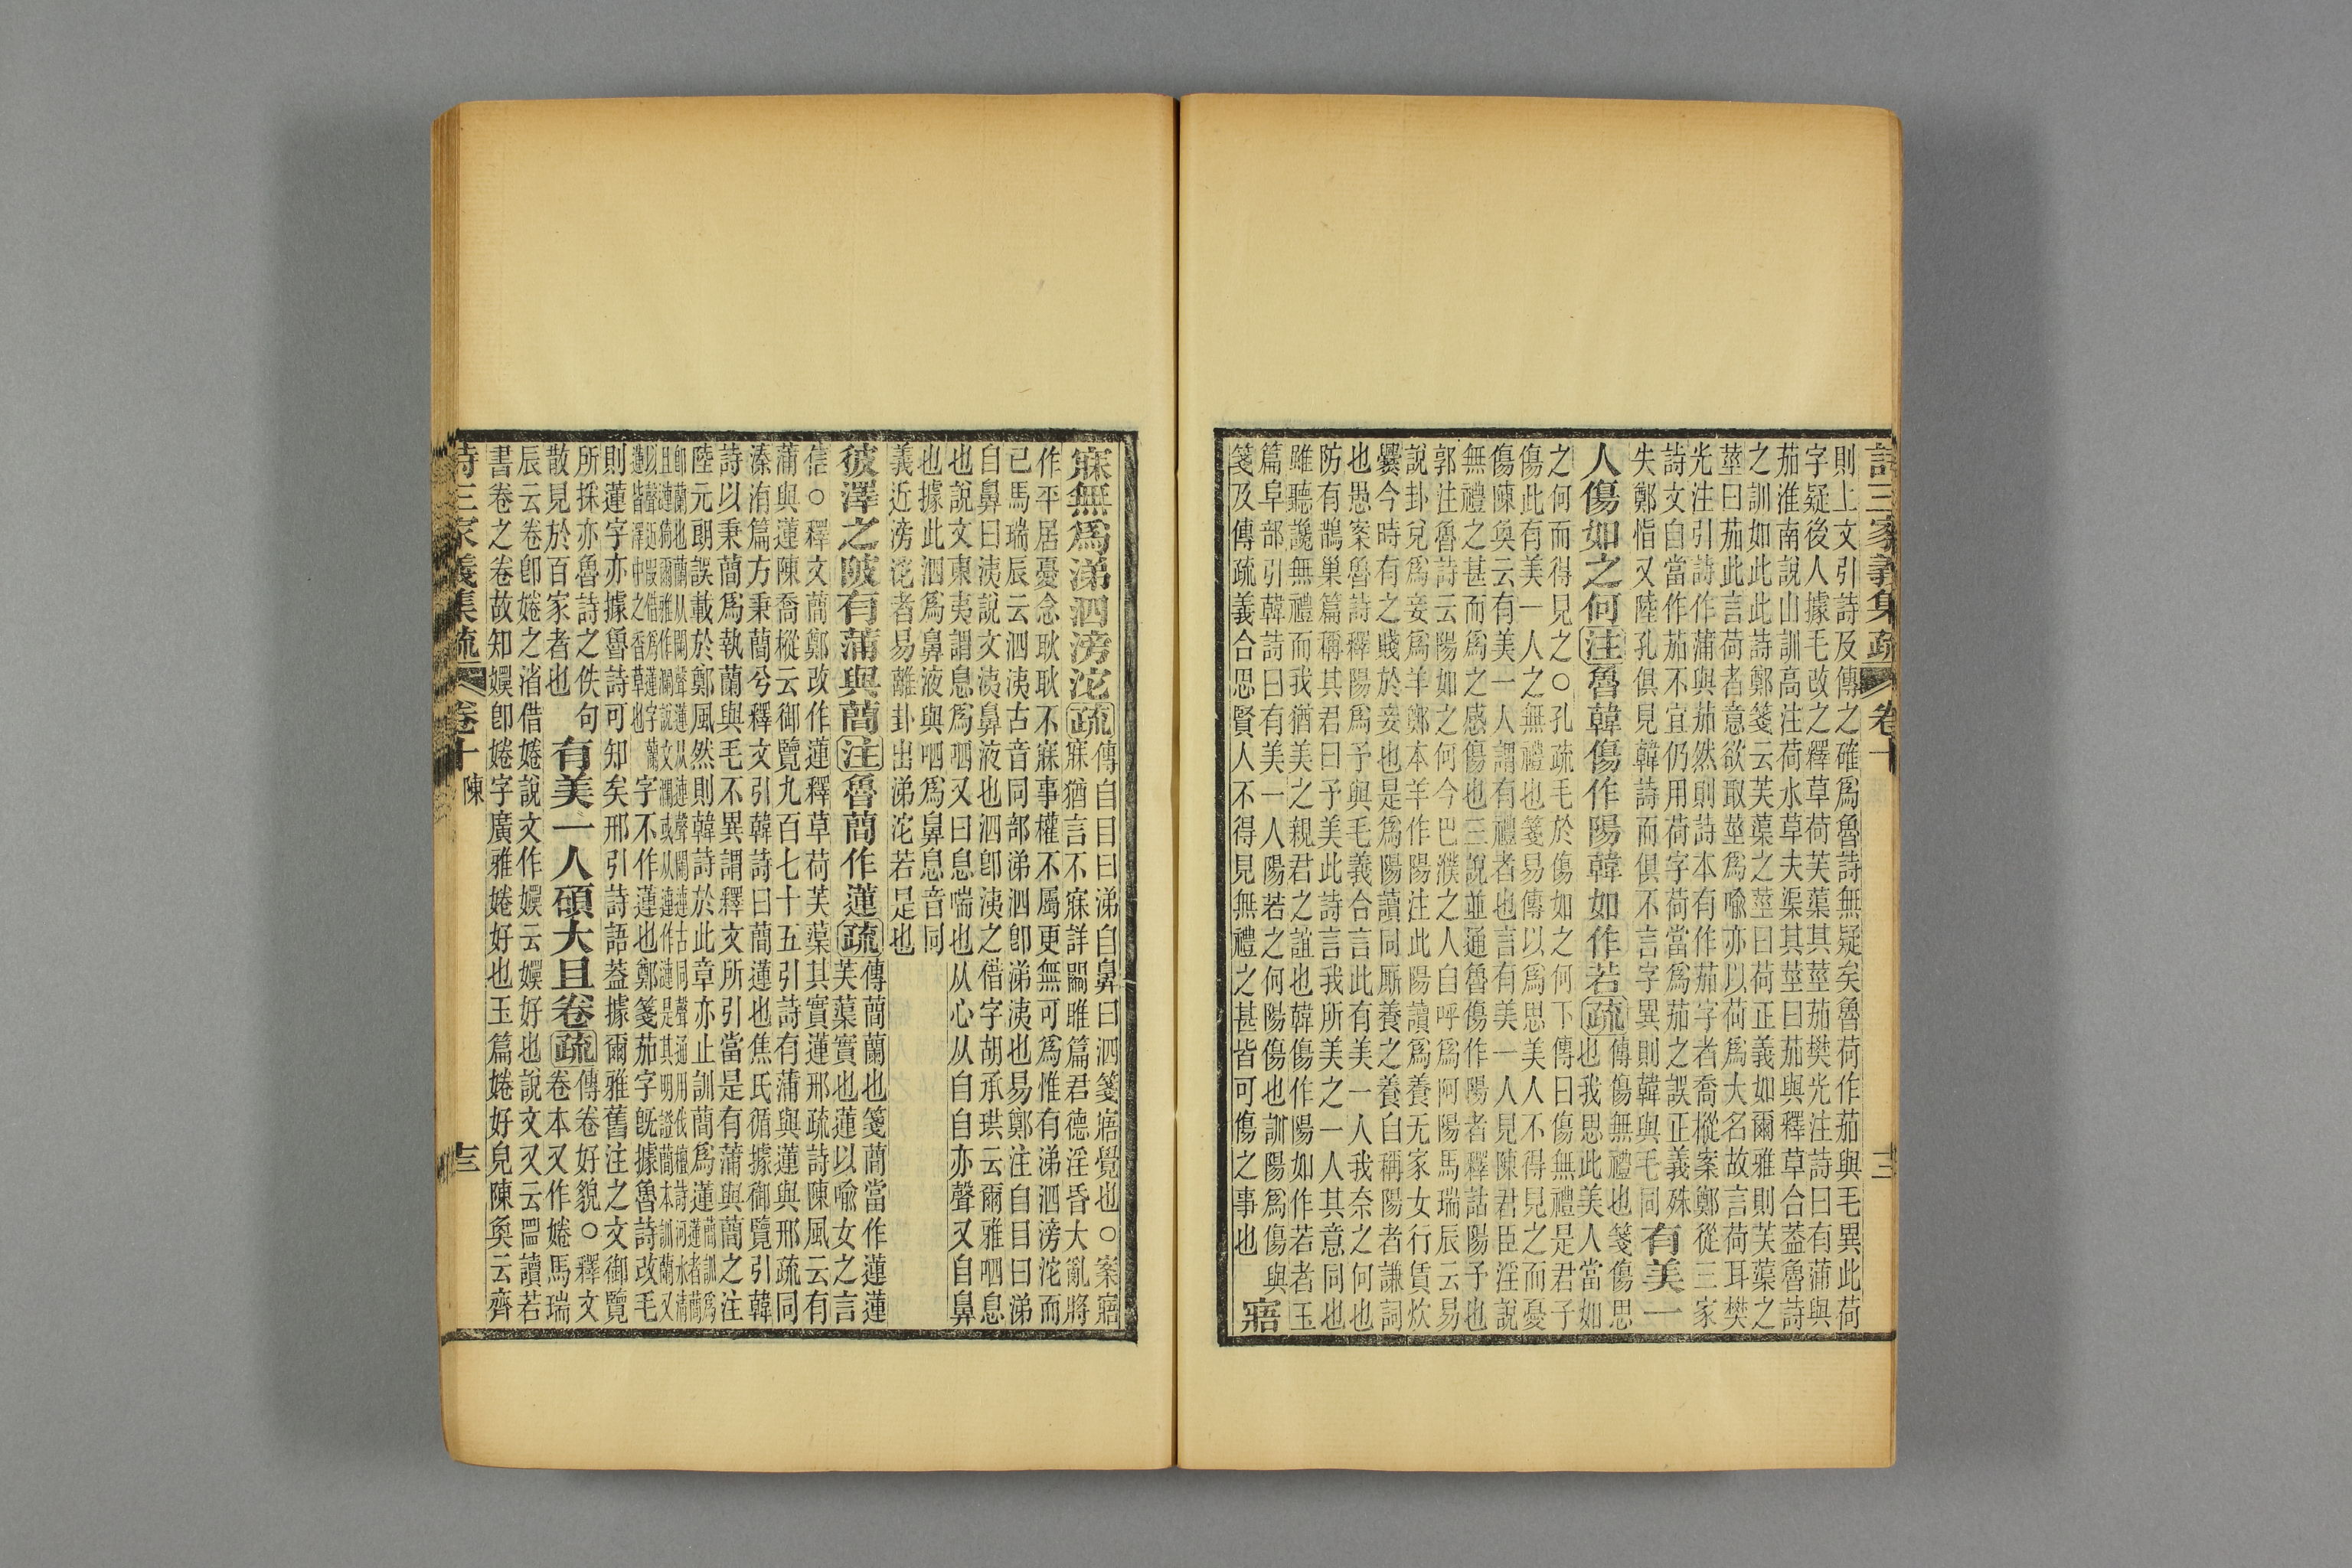 詩三家義集疏 卷十
則上文引詩及傳之確爲魯詩無疑矣魯荷作茄與毛異此荷
字疑後人據毛改之釋草荷芙蕖其莖茄樊光注詩曰有蒲與
茄淮南說山訓高注荷水草夫渠其莖曰茄與釋草合葢魯詩
之訓如此此詩鄭箋云芙蕖之莖曰荷正義如爾雅則芙蕖之
莖曰茄此言荷者意欲取莖爲喻亦以荷爲大名故言荷耳樊
光注引詩作蒲與茄然則詩本有作茄字者喬樅案鄭從三家
詩文自當作茄不宜仍用荷字荷當爲茄之誤正義殊
失鄭恉又陸孔俱見韓詩而俱不言字異則韓與毛同
有美一
人傷如之何注魯韓傷作陽韓如作若疏
傳傷無禮也箋傷思
也我思此美人當如
之何而得見之○孔疏毛於傷如之何下傳曰傷無禮是君子
傷此有美一人之無禮也箋易傳以爲思美人不得見之而憂
傷陳奐云有美一人謂有禮者也言有美一人見陳君臣淫說
無禮之甚而爲之感傷也三說並通魯傷作陽者釋詁陽予也
郭注魯詩云陽如之何今巴濮之人自呼爲阿陽馬瑞辰云易
說卦兌爲妾爲羊鄭本羊作陽注此陽讀爲養无家女行賃炊
爨今時有之賤於妾也是爲陽讀同厮養之養自稱陽者謙詞
也愚案魯詩釋陽爲予與毛義合言此有美一人我奈之何也
防有鵲巢篇稱其君曰予美此詩言我所美之一人其意同也
雖聽讒無禮而我猶美之親君之誼也韓傷作陽如作若者玉
篇阜部引韓詩曰有美一人陽若之何陽傷也訓陽爲傷與
箋及傳疏義合思賢人不得見無禮之甚皆可傷之事也
寤
寐無爲涕泗滂沱疏
傳自目曰涕自鼻曰泗箋寤覺也○案寤
寐猶言不寐詳關雎篇君德淫昏大亂將
作平居憂念耿耿不寐事權不屬更無可爲惟有涕泗滂沱而
已馬瑞辰云泗洟古音同部涕泗卽涕洟也易鄭注自目曰涕
自鼻曰洟說文洟鼻液也泗卽洟之借字胡承珙云爾雅呬息
也說文東夷謂息爲呬又曰息喘也从心从自自亦聲又自鼻
也據此泗爲鼻液與呬爲鼻息音同
義近滂沱者易離卦出涕沱若是也
彼澤之陂有蒲與蕑注魯蕑作蓮疏
傳蕑蘭也箋蕑當作蓮蓮
芙蕖實也蓮以喻女之言
信○釋文蕑鄭改作蓮釋草荷芙蕖其實蓮邢疏詩陳風云有
蒲與蓮陳喬樅云御覽九百七十五引詩有蒲與蓮與邢疏同
溱洧篇方秉蕑兮釋文引韓詩曰蕑蓮也焦氏循據御覽引韓
詩以秉蕑爲執蘭與毛不異謂釋文所引當是有蒲與蕑之注
陸元朗誤載於鄭風然則韓詩於此章亦止訓蕑爲蓮
則蓮字亦據魯詩可知矣邢引詩語葢據爾雅舊注之文御覽
所採亦魯詩之佚句
散見於百家者也
有美一人碩大且卷疏
傳卷好貌○釋文
卷本又作婘馬瑞
辰云卷卽婘之渻借婘說文作嬽云嬽好也說文又云㘝讀若
書卷之卷故知嬽卽婘字廣雅婘好也玉篇婘好皃陳奐云齊
詩三家義集疏 卷十 陳